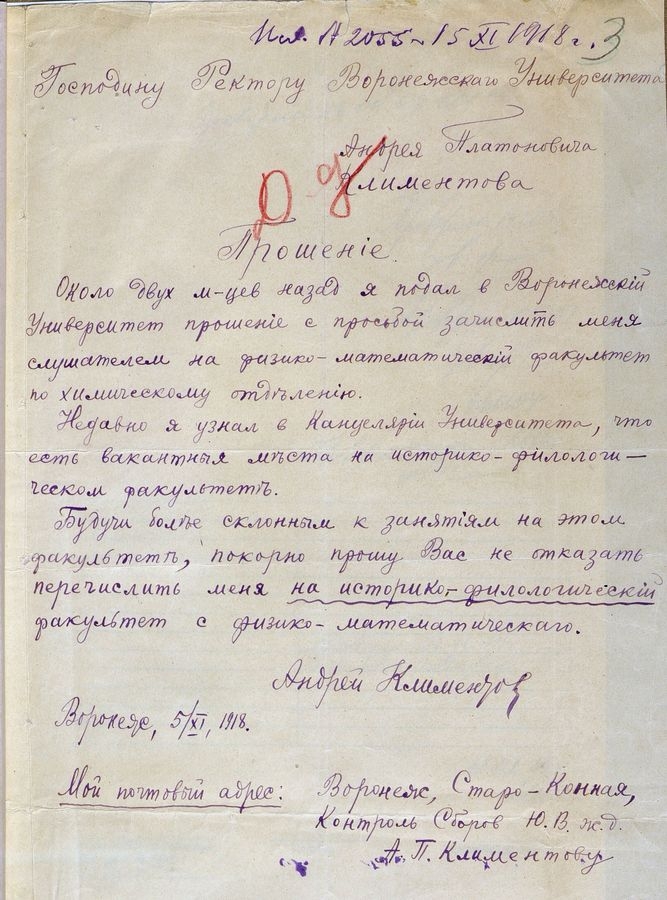 № 2055 15 XI 1918 г. 3
Господину Ректору Воронежскаго Университета
Андрея Платоновича
Климентова
Прошеніе.
Около двух м-цев назад я подал в Воронежскій
Университет прошеніе с просьбой зачислить меня
слушателем на физико-математическій факультет
по химическому отдѣленію.
Недавно я узнал в Канцеляріи Университета, что
есть вакантныя мѣста на историко-филологи-
ческом факультетѣ.
Будучи болѣе склонным к занятіям на этом
факультетѣ, покорно прошу Вас не отказать
перечислить меня на историко-филологическій
факультет с физико-математическаго.
Андрей Климентов
Воронеж, 5/XI, 1918.
Мой почтовый адрес: Воронеж, Старо-Конная,
Контроль Сборов Ю. В. ж. д.
А. П. Климентову